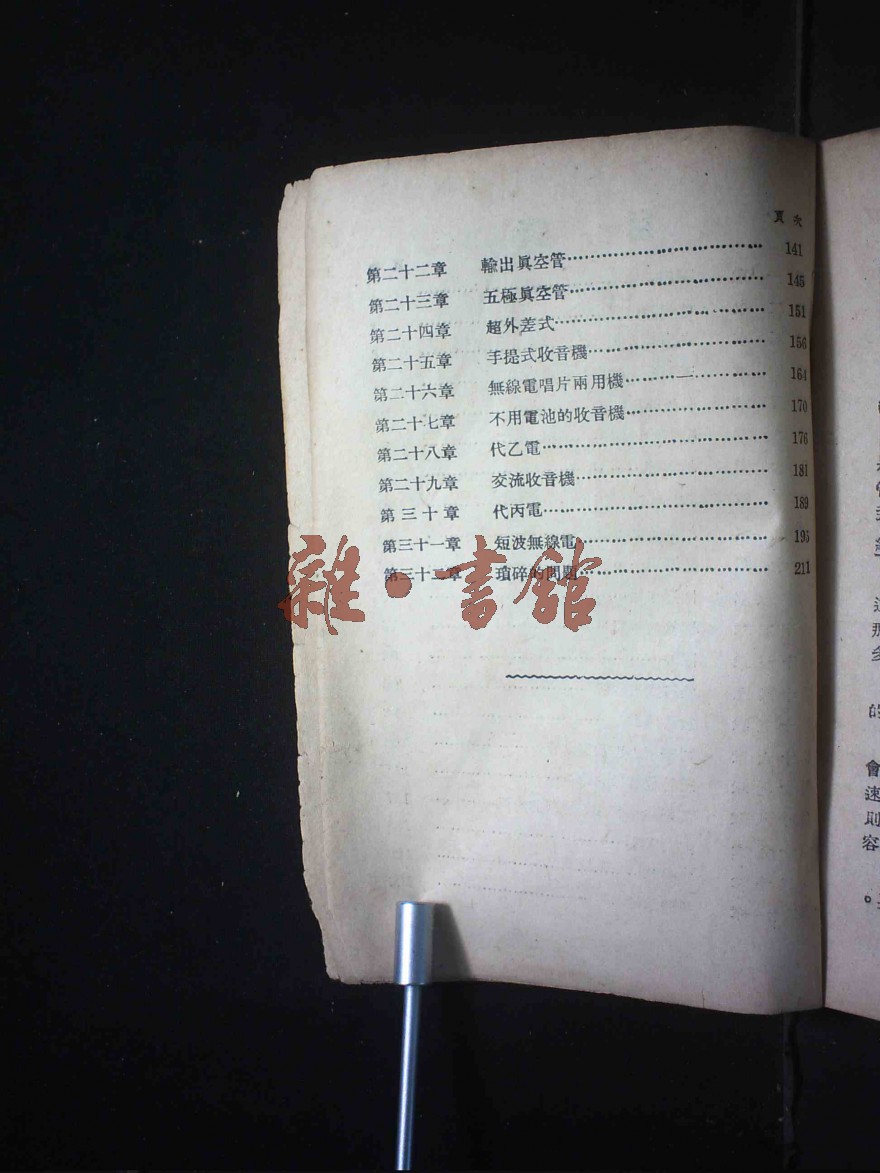 頁次
第二十二章 輸出眞空管 141
第二十三章 五極眞空管 145
第二十四章 超外差式 151
第二十五章 手提式收音機 156
第二十六章 無線電唱片兩用機 164
第二十七章 不用電池的收音機 170
第二十八章 代乙電 176
第二十九章 交流收音機 181
第三十章 代丙電 189
第三十一章 短波無線電 195
第三十二章 瑣碎的問題 211
雜·書館
的
會
速
則
容